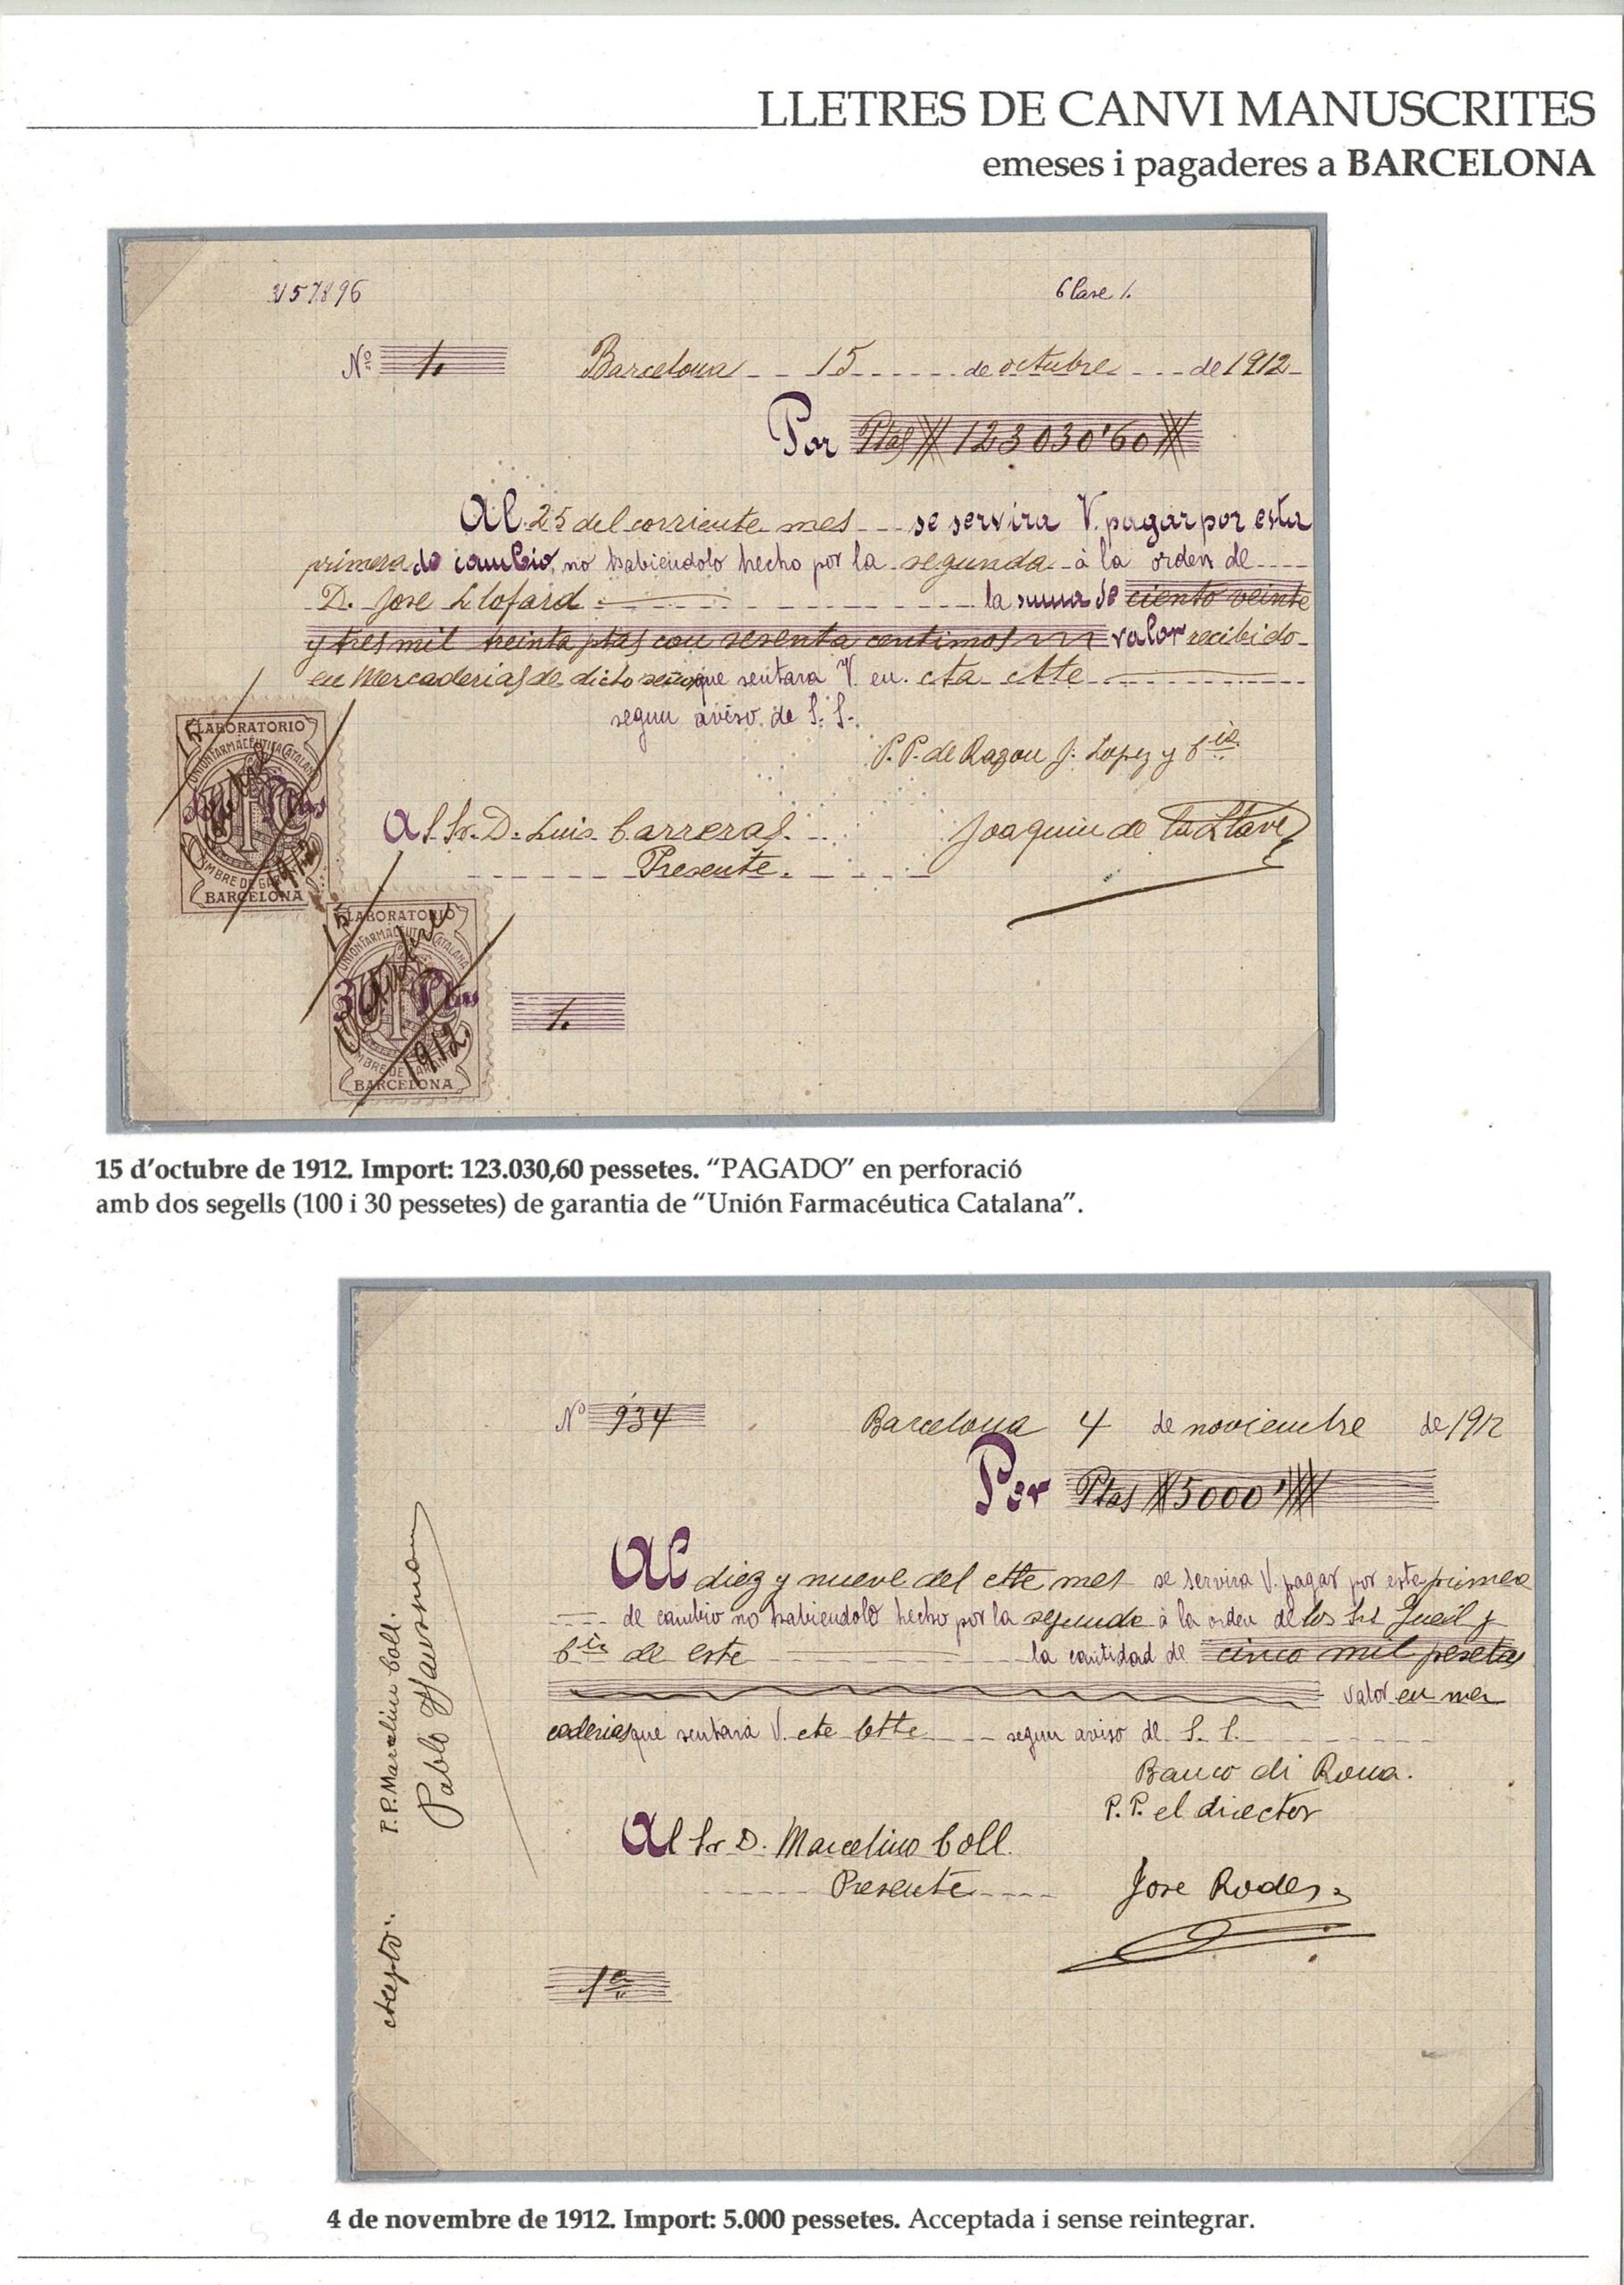 LLETRES DE CANVI MANUSCRITES
emeses i pagaderes a BARCELONA
Clase 1.
Nº 1. Barcelona 15 de octubre de 1912
Por Ptas 123030'60
Al 25 del corriente mes se servira V. pagar por esta
primera de cambio, no habiendolo hecho por la segunda à la orden de
D. Jose Llofard la suma de ciento veinte
y tres mil treinta ptas con sesenta centimos valor recibido
en Mercaderias de dicho señor que sentara V. en cta ctte
segun aviso de S. S.
P. P. de Razon J. Lopez y Cia
Al Sr. D. Luis Carreras. Joaquin de la Llave
Presente.
LABORATORIO
UNION FARMACÉUTICA CATALANA
15 Octubre 1912
TIMBRE DE GARANTIA
BARCELONA
LABORATORIO
UNION FARMACÉUTICA CATALANA
30 Ptas
15 Octubre 1912
TIMBRE DE GARANTIA
BARCELONA
1.
15 d'octubre de 1912. Import: 123.030,60 pessetes. "PAGADO" en perforació
amb dos segells (100 i 30 pessetes) de garantia de "Unión Farmacéutica Catalana".
Nº 934 Barcelona 4 de noviembre de 1912
Por Ptas 5000'
Al diez y nueve del ctte mes se servira V. pagar por esta primera
de cambio no habiendolo hecho por la segunda à la orden de los Srs Jueil y
Cia de este la cantidad de cinco mil pesetas
valor en mer
caderias que sentará V. cta ctte segun aviso de S. S.
Banco di Roma.
P. P. el director
Al Sr D. Marcelino Coll.
Presente Jose Rodes
1ª
Acepto
P. P. Marcelino Coll.
Pablo Hausmann
4 de novembre de 1912. Import: 5.000 pessetes. Acceptada i sense reintegrar.